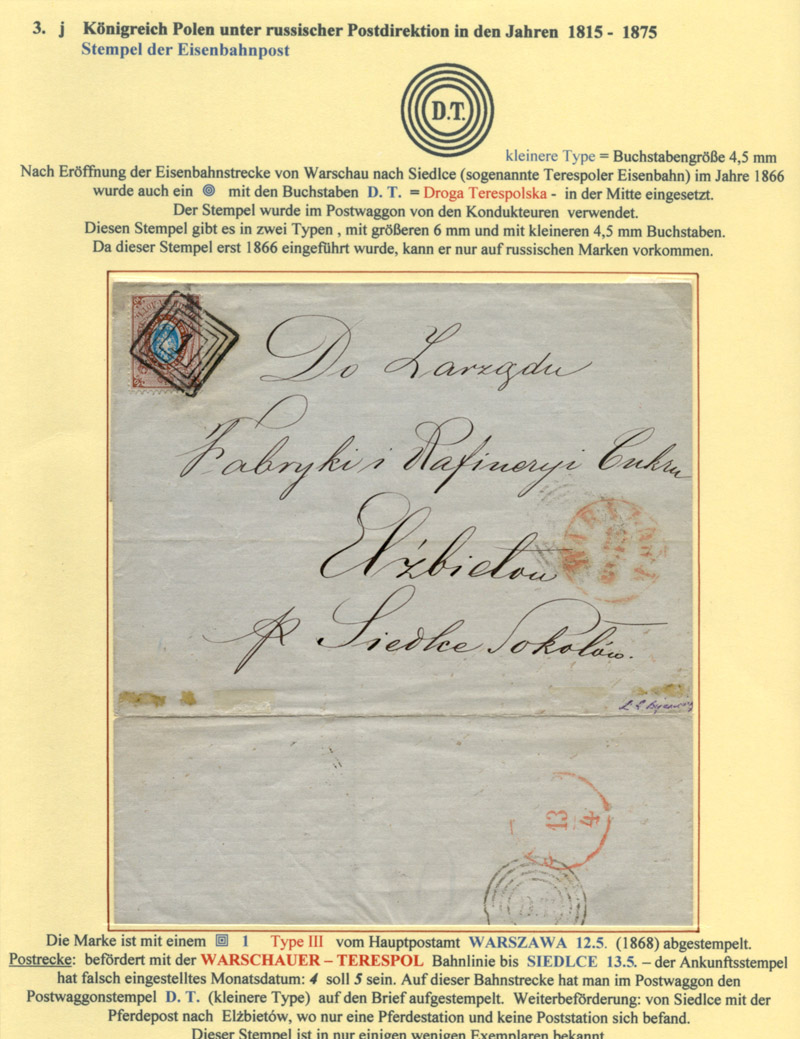 3. j Königreich Polen unter russischer Postdirektion in den Jahren 1815 - 1875
Stempel der Eisenbahnpost
D.T.
kleinere Type = Buchstabengröße 4,5 mm
Nach Eröffnung der Eisenbahnstrecke von Warschau nach Siedlce (sogenannte Terespoler Eisenbahn) im Jahre 1866
wurde auch ein mit den Buchstaben D. T. = Droga Terespolska - in der Mitte eingesetzt.
Der Stempel wurde im Postwaggon von den Kondukteuren verwendet.
Diesen Stempel gibt es in zwei Typen , mit größeren 6 mm und mit kleineren 4,5 mm Buchstaben.
Da dieser Stempel erst 1866 eingeführt wurde, kann er nur auf russischen Marken vorkommen.
1
Do Zarządu
Fabryki i Rafineryi Cukru
Elżbietow
p Siedlce Sokołów.
13
4
D.T.
Die Marke ist mit einem 1 Type III vom Hauptpostamt WARSZAWA 12.5. (1868) abgestempelt.
Postrecke: befördert mit der WARSCHAUER – TERESPOL Bahnlinie bis SIEDLCE 13.5. – der Ankunftsstempel
hat falsch eingestelltes Monatsdatum: 4 soll 5 sein. Auf dieser Bahnstrecke hat man im Postwaggon den
Postwaggonstempel D. T. (kleinere Type) auf den Brief aufgestempelt. Weiterbeförderung: von Siedlce mit der
Pferdepost nach Elżbietów, wo nur eine Pferdestation und keine Poststation sich befand.
Dieser Stempel ist in nur einigen wenigen Exemplaren bekannt